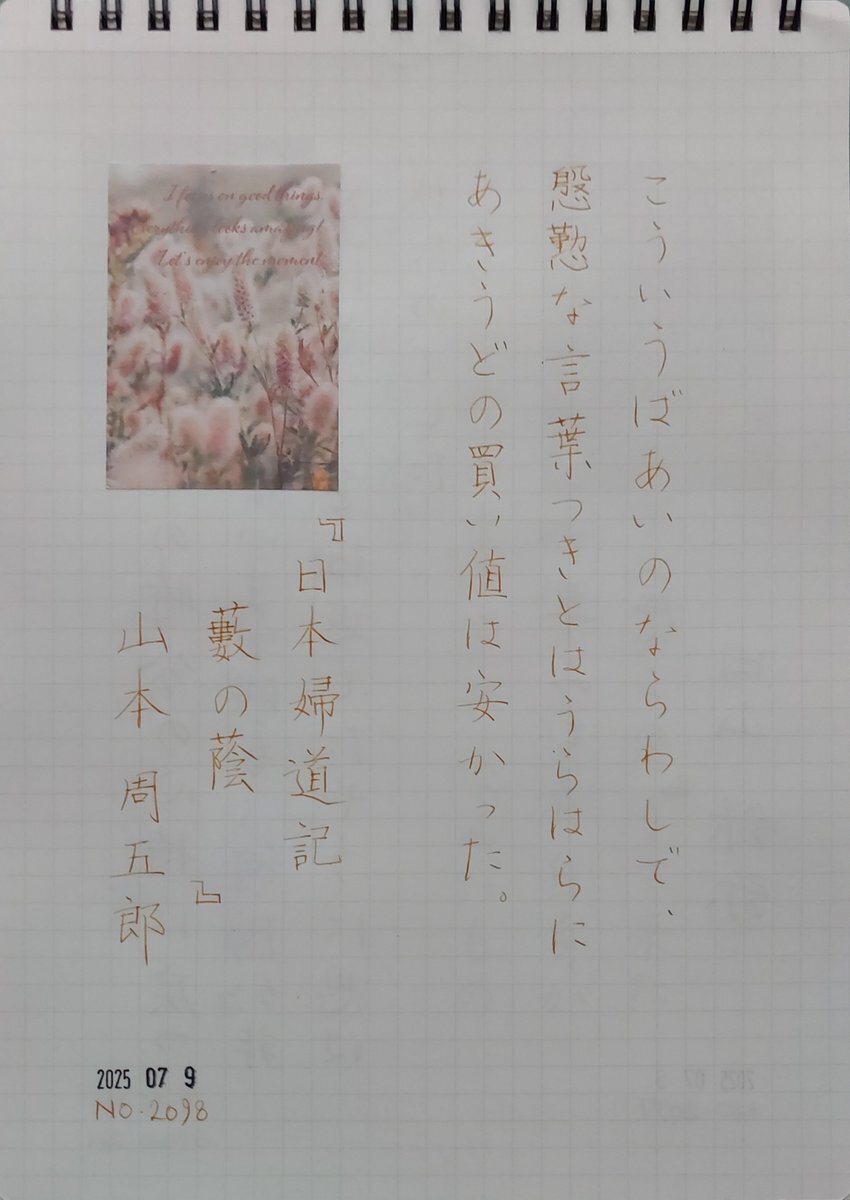 こういうばあいのならわしで、
慇懃な言葉つきとはうらはらに
あきうどの買い値は安かった。
I focus on good things.
Everything looks amazing!
Let's enjoy the moment.
『日本婦道記
藪の蔭』
山本周五郎
2025 07 9
NO.2098